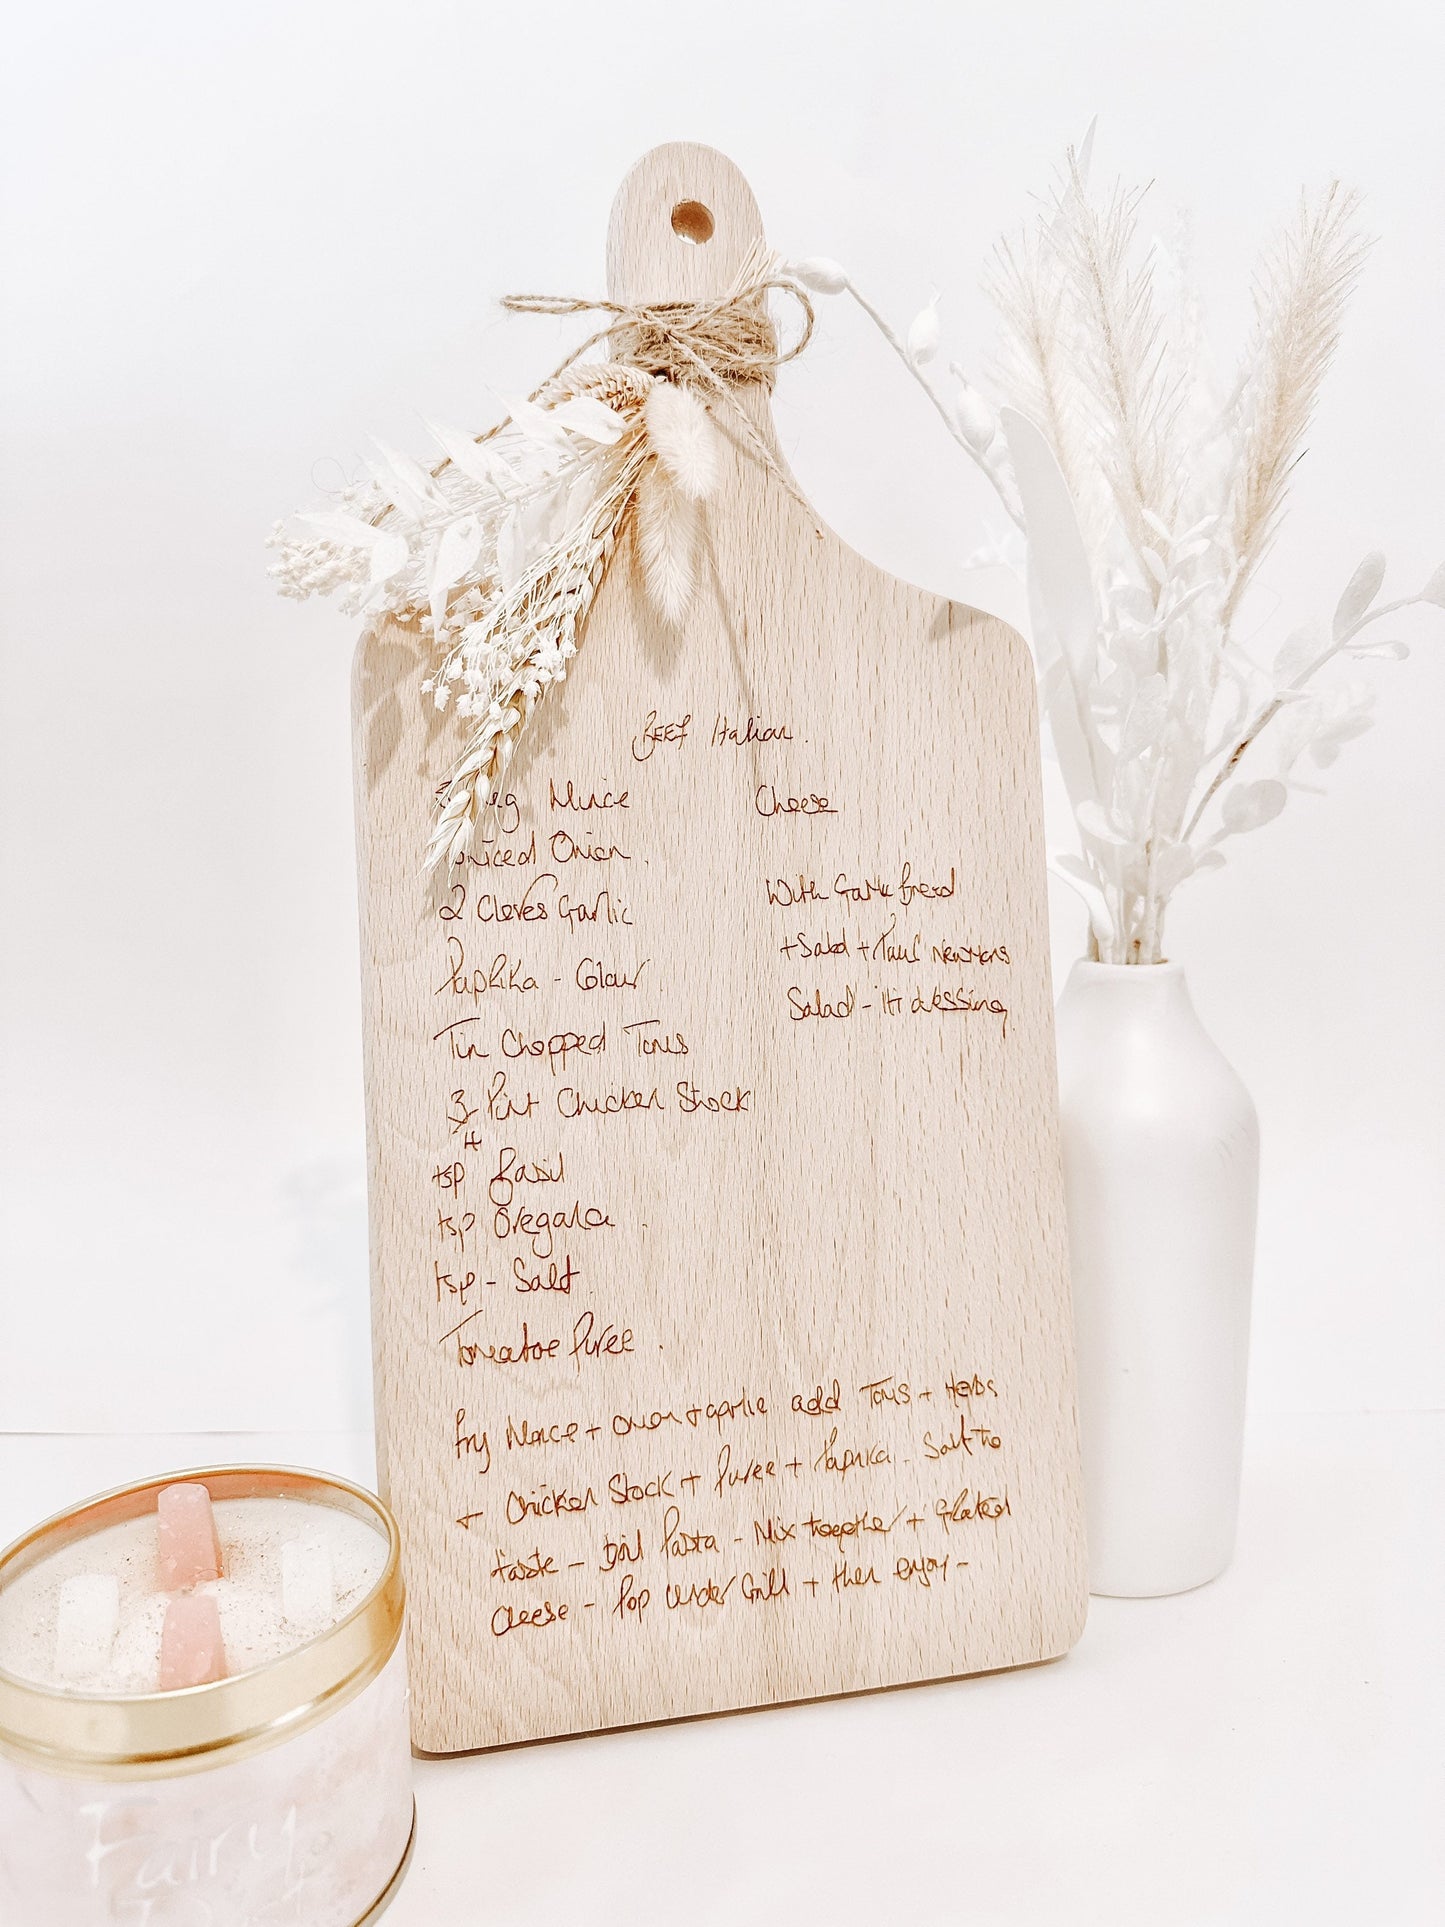 BEEF Italian.
Mince
Onion.
2 Cloves Garlic
Paprika - Colour.
Tin Chopped Toms
3/4 Pint Chicken Stock
tsp Basil
tsp Oregano.
tsp - Salt.
Tomatoe Puree.
Cheese
With Garlic Bread
+ Salad + Paul Newmans
Salad - dressing.
Fry Mince + onion + garlic add Toms + Herbs
+ Chicken Stock + Puree + Paprika. Salt to
taste - Boil Pasta - Mix together + Grated
Cheese - Pop under Grill + then enjoy -
Fairy